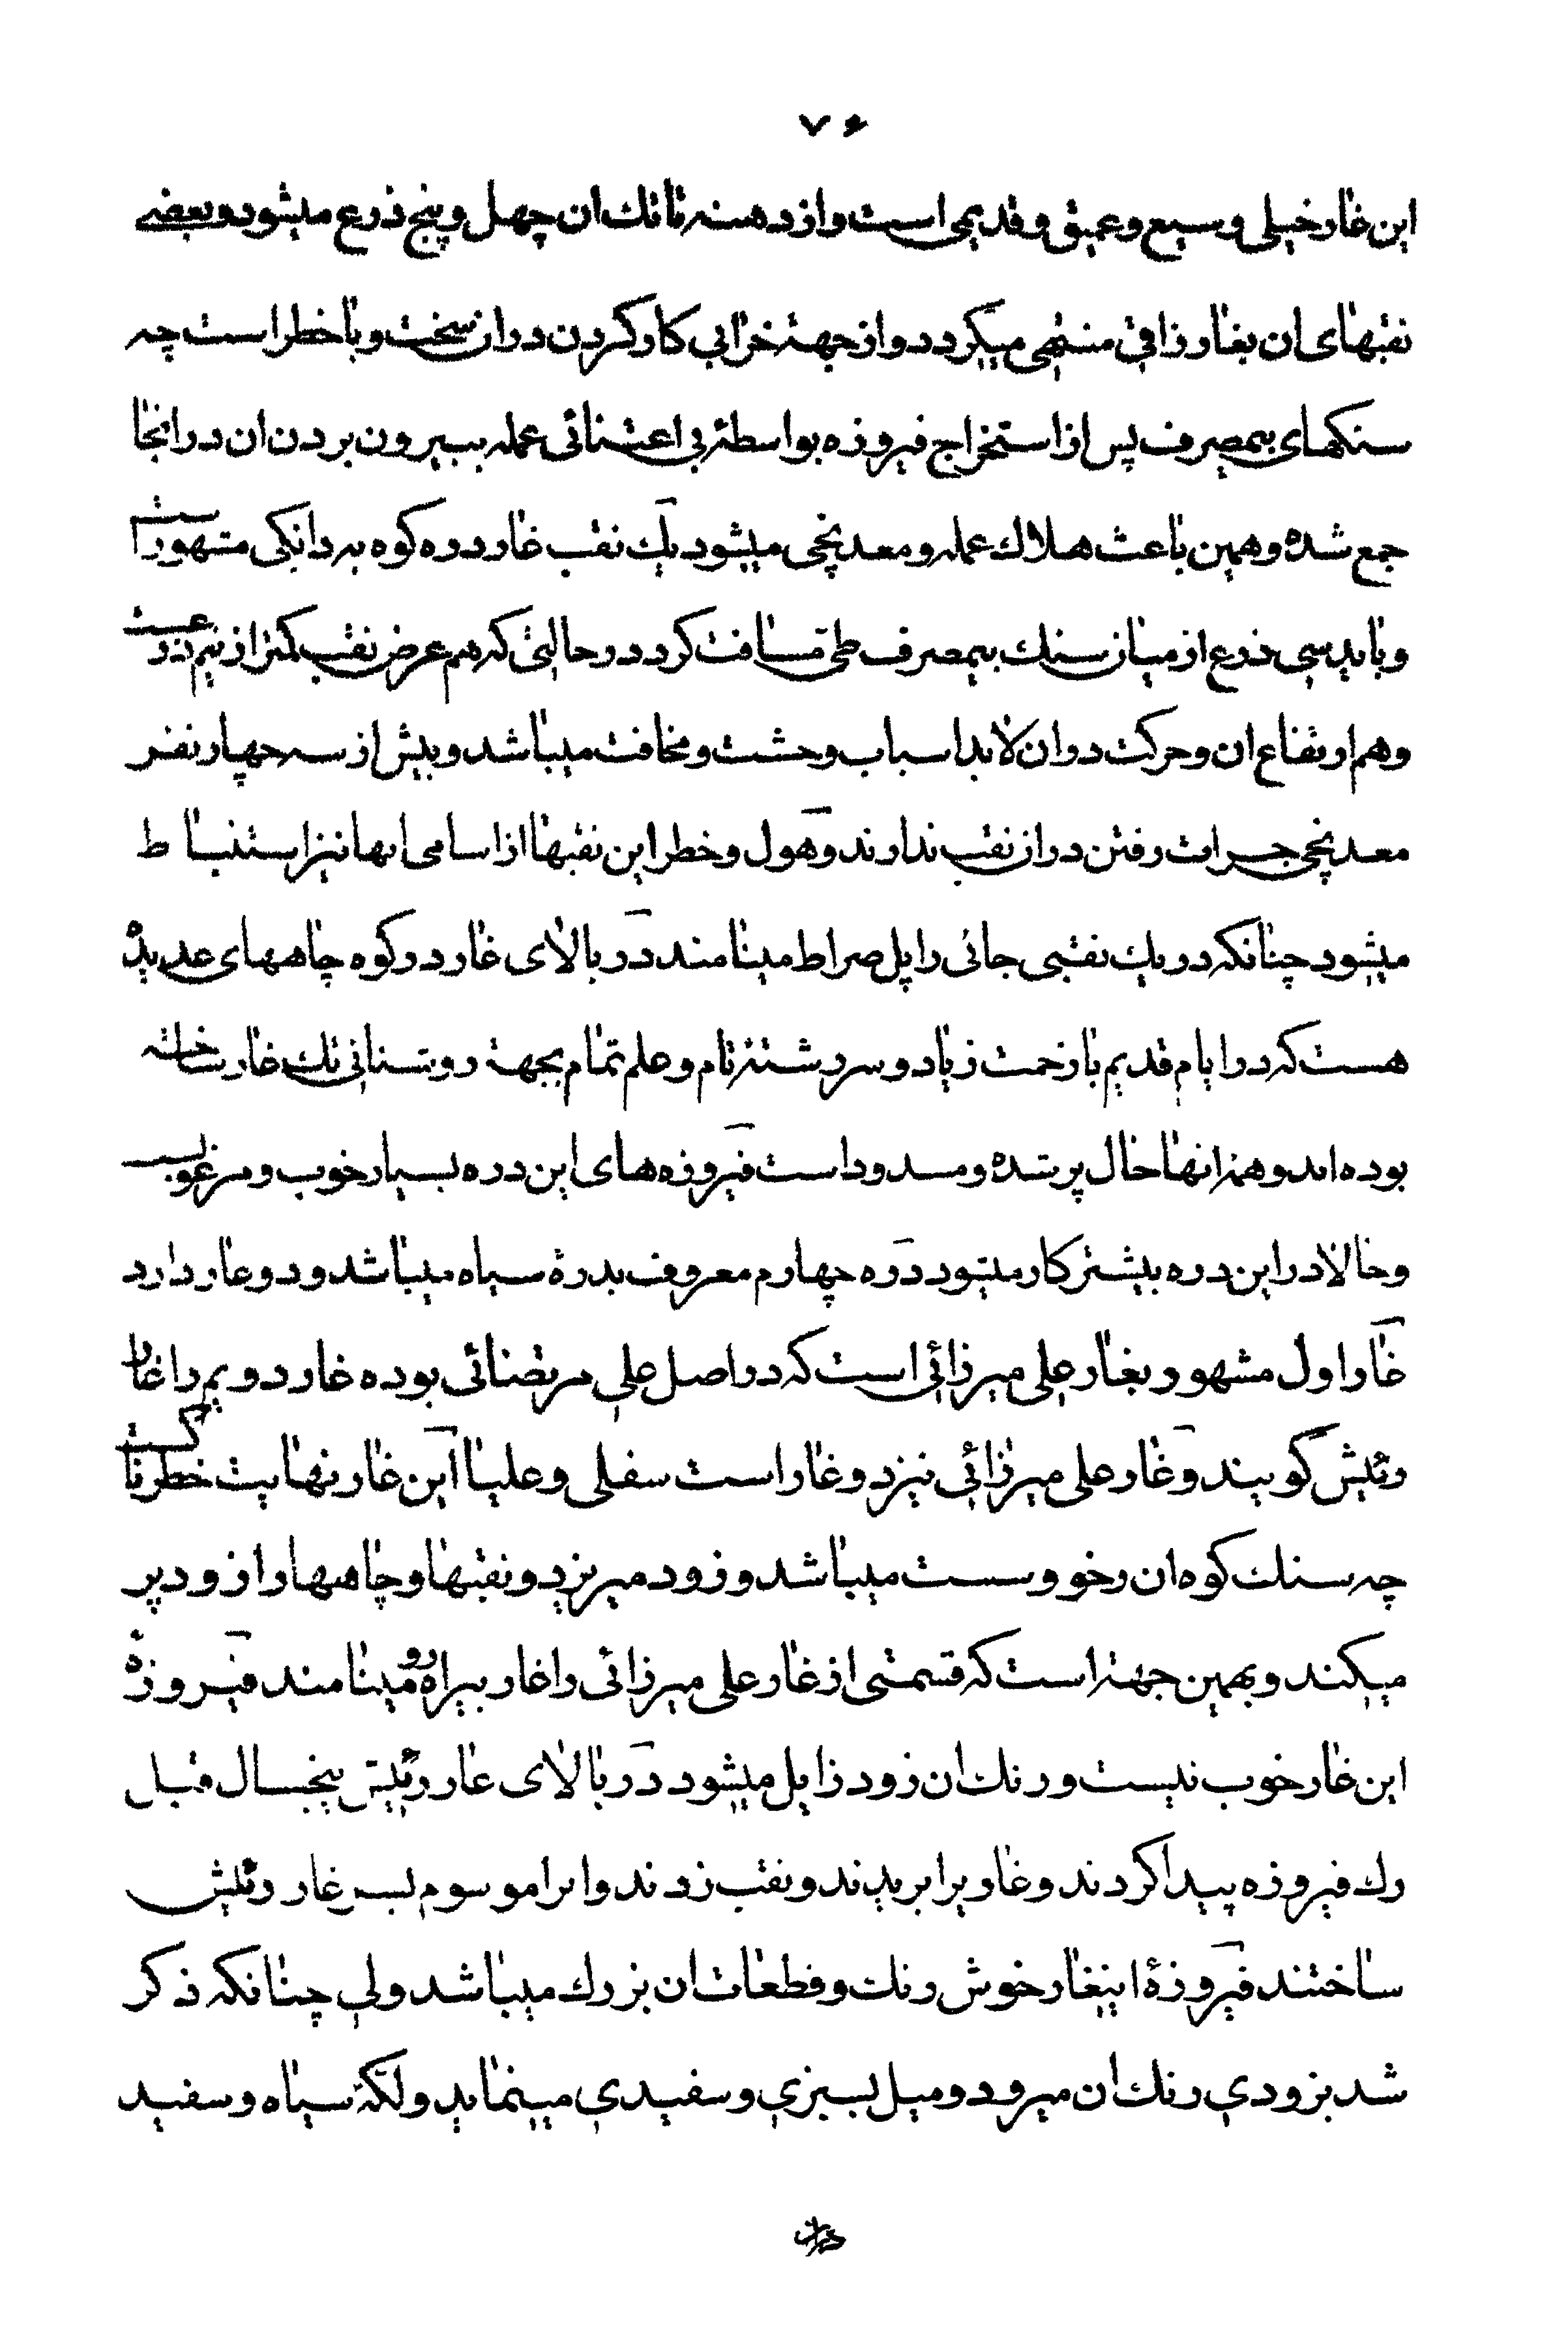 ۷۶
این غار خیلی وسیع و عمیق و قدیمی است و از دهنه تا تك ان چهل و پنج ذرع میشود و بعضے
نقبهای ان بغار زاقی منتهی میگردد و از جهة خرابی کار کردن در ان سخت و با خطر است چه
سنکهای بیمصرف پس از استخراج فیروزه بواسطۀ بی اعتنائی عمله ببیرون بردن ان در انجا
جمع شده و همین باعث هلاك عمله و معدنچی میشود یك نقب غار دره کوه به دانکی مشهور است
و باید سی ذرع از میان سنك بیمصرف طی مسافت کرد در حالتی که هم عرض نقب کمتر از نیم ذرعست
و هم ارتفاع ان و حرکت در ان لابد اسباب وحشت و مخافت میباشد و بیش از سه چهار نفر
معدنچی جرات رفتن در ان نقب ندارند و هول و خطر این نقبها از اسامی انها نیز استنباط
میشود چنانکه در یك نقبی جائی را پل صراط مینامند در بالای غار در کوه چاههای عدیدۀ
هست که در ایام قدیم با زحمت زیاد و سر رشتۀ تام و علم تمام بجهة روشنائی تك غار ساخته
بوده اند و همۀ انها حال پر شده و مسدود است فیروزه های این دره بسیار خوب و مرغوب
و حالا در این دره بیشتر کار میشود دره چهارم معروف بدرۀ سیاه میباشد و دو غار دارد
غار اول مشهور بغار علی میرزائی است که در اصل علی مرتضائی بوده غار دویم را غار
رئیش گویند و غار علی میرزائی نیز دو غار است سفلی و علیا این غار نهایت خطرناکست
چه سنك کوه ان رخو و سست میباشد و زود میریزد و نقبها و چاهها را زود پر
میکند و بهمین جهة است که قسمتی از غار علی میرزائی را غار بیراه رو مینامند فیروزۀ
این غار خوب نیست و رنك ان زود زایل میشود در بالای غار رئیش پنجسال قبل
رك فیروزه پیدا کردند و غاری را بریدند و نقب زدند و انرا موسوم بسر غار رئیش
ساختند فیروزۀ اینغار خوش رنك و قطعات ان بزرك میباشد ولی چنانکه ذکر
شد بزودی رنك ان میرود و میل بسبزی و سفیدی مینماید و لکّۀ سیاه و سفید